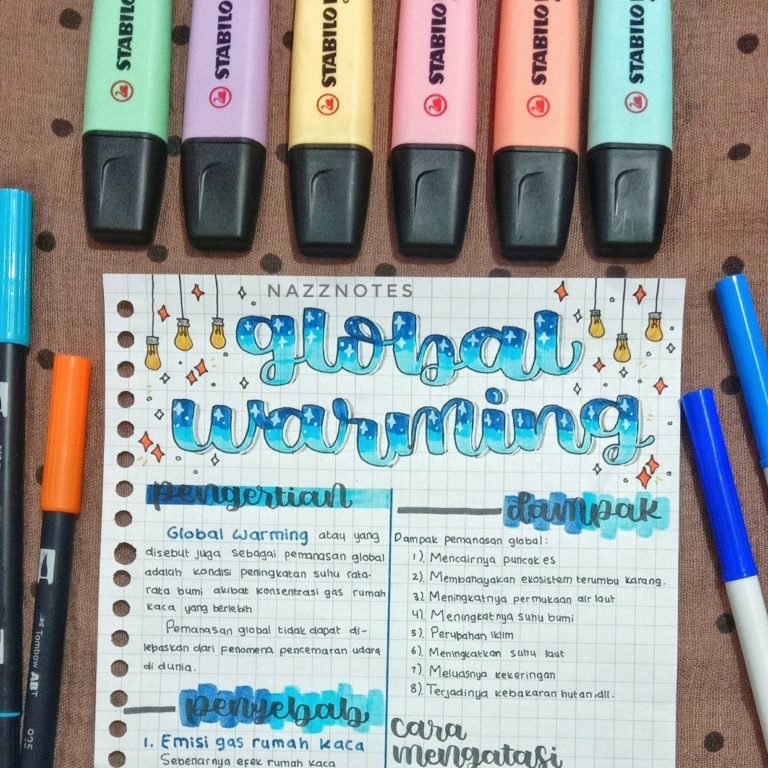 STABILO
STABILO
STABILO
STABILO
STABILO
STABILO
NAZZNOTES
global
warming
pengertian
Global warming atau yang
disebut juga sebagai pemanasan global
adalah kondisi peningkatan suhu rata-
rata bumi akibat konsentrasi gas rumah
kaca yang berlebih
Pemanasan global tidak dapat di-
lepaskan dari fenomena pencemaran udara
di dunia.
penyebab
1. Emisi gas rumah kaca
Sebenarnya efek rumah kaca
dampak
Dampak pemanasan global:
1). Mencairnya puncak es
2). Membahayakan ekosistem terumbu karang.
3). Meningkatnya permukaan air laut
4). Meningkatnya suhu bumi
5). Perubahan iklim
6). Meningkatkan suhu laut
7). Meluasnya kekeringan
8). Terjadinya kebakaran hutan.dll.
cara
mengatasi
Tombow ABT
025